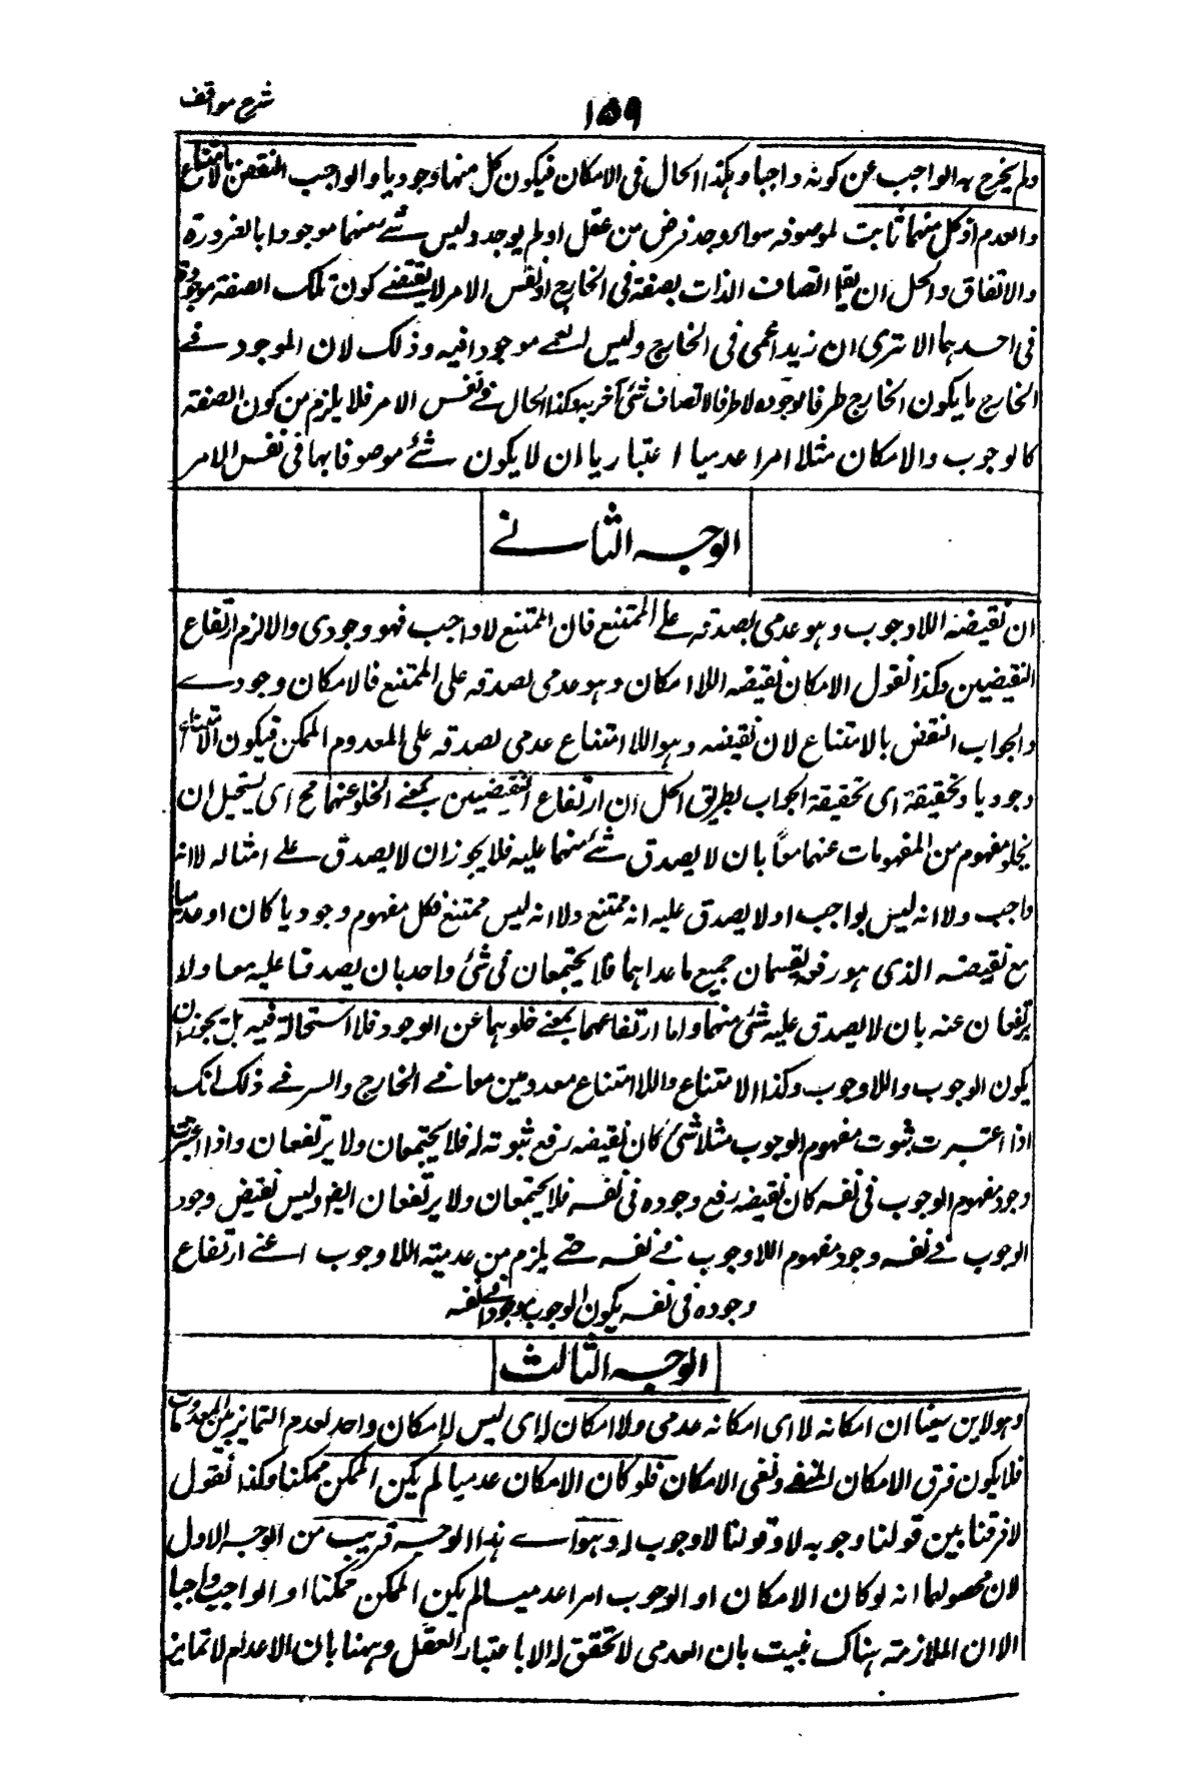 ١٥٩
شرح مواقف
ولم يخرج به الواجب عن كونه واجبا وهكذا الحال فى الامكان فيكون كل منهما وجوديا والواجب النقض بالامتناع
والعدم اذ كل منهما ثابت لموصوفه سواء وجد فرض من عقل او لم يوجد وليس شئ منهما موجودا بالضرورة
والاتفاق والحل ان يقال اتصاف الذات بصفة فى الخارج او نفس الامر لا يقتضے كون تلك الصفة موجودة
فى احدهما الا ترى ان زيدا اعمى فى الخارج وليس العمے موجودا فيه وذلك لان الموجود فے
الخارج ما يكون الخارج ظرفا لوجوده لا ظرفا لاتصاف شئ آخر به وكذا الحال فے نفس الامر فلا يلزم من كون الصفة
كالوجوب والامكان مثلا امرا عدميا اعتباريا ان لا يكون شئ موصوفا بها فى نفس الامر
الوجه الثانے
ان نقيضه اللاوجوب وهو عدمى لصدقه علے الممتنع فان الممتنع لا واجب فهو وجودى والا لزم ارتفاع
النقيضين وكذا نقول الامكان نقيضه اللاامكان وهو عدمى لصدقه على الممتنع فالامكان وجودے
والجواب النقض بالامتناع لان نقيضه وهو اللاامتناع عدمى لصدقه على المعدوم الممكن فيكون الامتناع
وجوديا وتحقيقة اى تحقيقة الجواب بطريق الحل ان ارتفاع النقيضين بمعنے الخلو عنهما مح اى يستحيل ان
يخلو مفهوم من المفهومات عنهما معا بان لا يصدق شئ منهما عليه فلا يجوز ان لا يصدق علے امثاله لا انه
واجب ولا انه ليس بواجب او لا يصدق عليه انه ممتنع ولا انه ليس ممتنع فكل مفهوم وجوديا كان او عدميا
مع نقيضه الذى هو رفعه يقتسمان جميع ما عداهما فلا يجتمعان فى شئ واحد بان يصدقا عليه معا ولا
يرتفعان عنه بان لا يصدق عليه شئ منهما واما ارتفاعهما بمعنے خلوهما عن الوجود فلا استحالة فيه بل يجوز ان
يكون الوجوب واللاوجوب وكذا الامتناع واللاامتناع معدومين معا فے الخارج والسر فے ذلك انك
اذا اعتبرت ثبوت مفهوم الوجوب مثلا لشئ كان نقيضه رفع ثبوته له فلا يجتمعان ولا يرتفعان واذا اعتبرت
وجود مفهوم الوجوب فى نفسه كان نقيضه رفع وجوده فى نفسه فلا يجتمعان ولا يرتفعان ايضا وليس نقيض وجود
الوجوب فے نفسه وجود مفهوم اللاوجوب فے نفسه حتے يلزم من عدمية اللاوجوب اعنے ارتفاع
وجوده فى نفسه يكون الوجوب موجودا فے نفسه
الوجه الثالث
وهو لابن سينا ان امكانه لا اى امكانه عدمى ولا امكان له اى ليس له امكان واحد لعدم التمايز بين المعدومات
فلا يكون فرق الامكان المنفے ونفى الامكان فلو كان الامكان عدميا لم يكن الممكن ممكنا وكذا نقول
لا فرقنا بين قولنا وجوبه لا وقولنا لا وجوب له وهو اے هذا الوجه قريب من الوجه الاول
لان محصولهما انه لو كان الامكان او الوجوب امرا عدميا لم يكن الممكن ممكنا او الواجب واجبا
الا ان الملازمة هناك بنيت بان العدمى لا تحقق له الا باعتبار العقل وههنا بان الاعدام لا تمايز